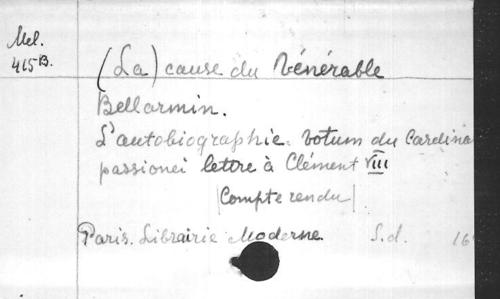 Mel.
415B.
(La) cause du Vénérable
Bellarmin.
L'autobiographie. Votum du Cardina
passionei lettre à Clément VIII
|Compte rendu|
Paris. Librairie Moderne. S.d. 16°